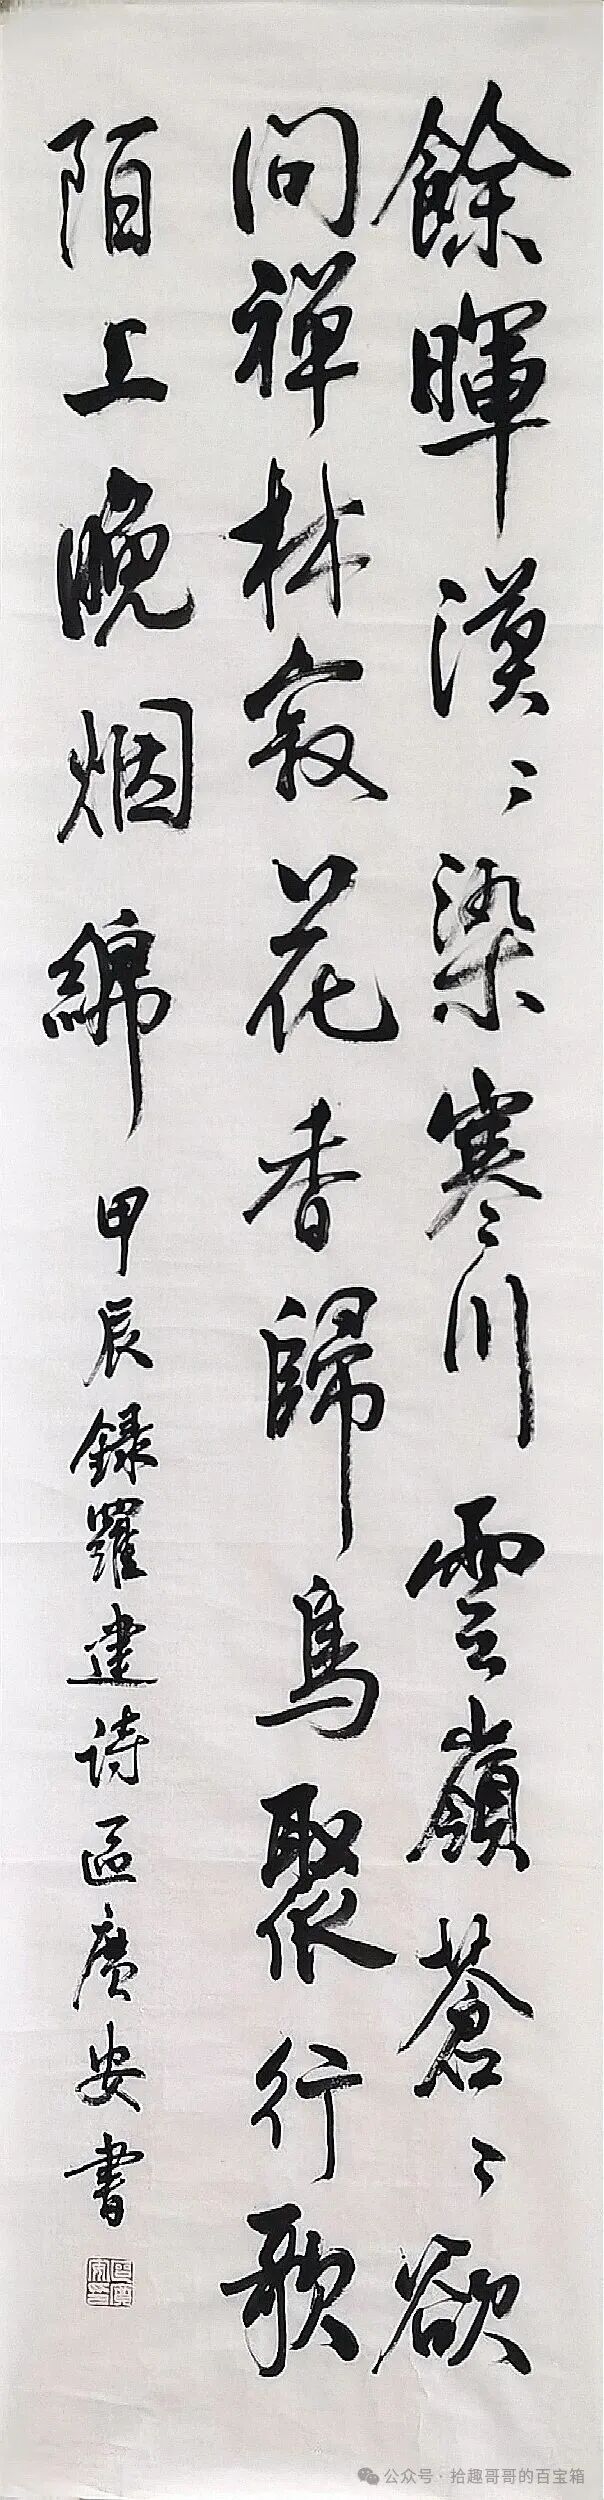 餘暉漠〻染寒川雲嶺蒼〻欲
問禅林寂花香歸鳥聚行歌
陌上晚烟綿
甲辰錄羅建诗區廣安書
公众号·拾趣哥哥的百宝箱